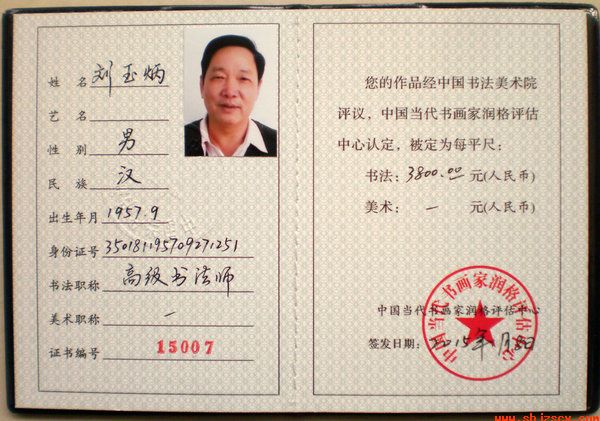 姓 名 刘玉炳
艺 名
性 别 男
民 族 汉
出生年月 1957.9
身份证号 350181195709271251
书法职称 高级书法师
美术职称 一
证书编号 15007
您的作品经中国书法美术院
评议，中国当代书画家润格评估
中心认定，被定为每平尺：
书法：3800.00 元(人民币)
美术： 一 元(人民币)
中国当代书画家润格评估中心
中国当代书画家润格评估中心
签发日期：2015年1月8日
www.shjzscx.com